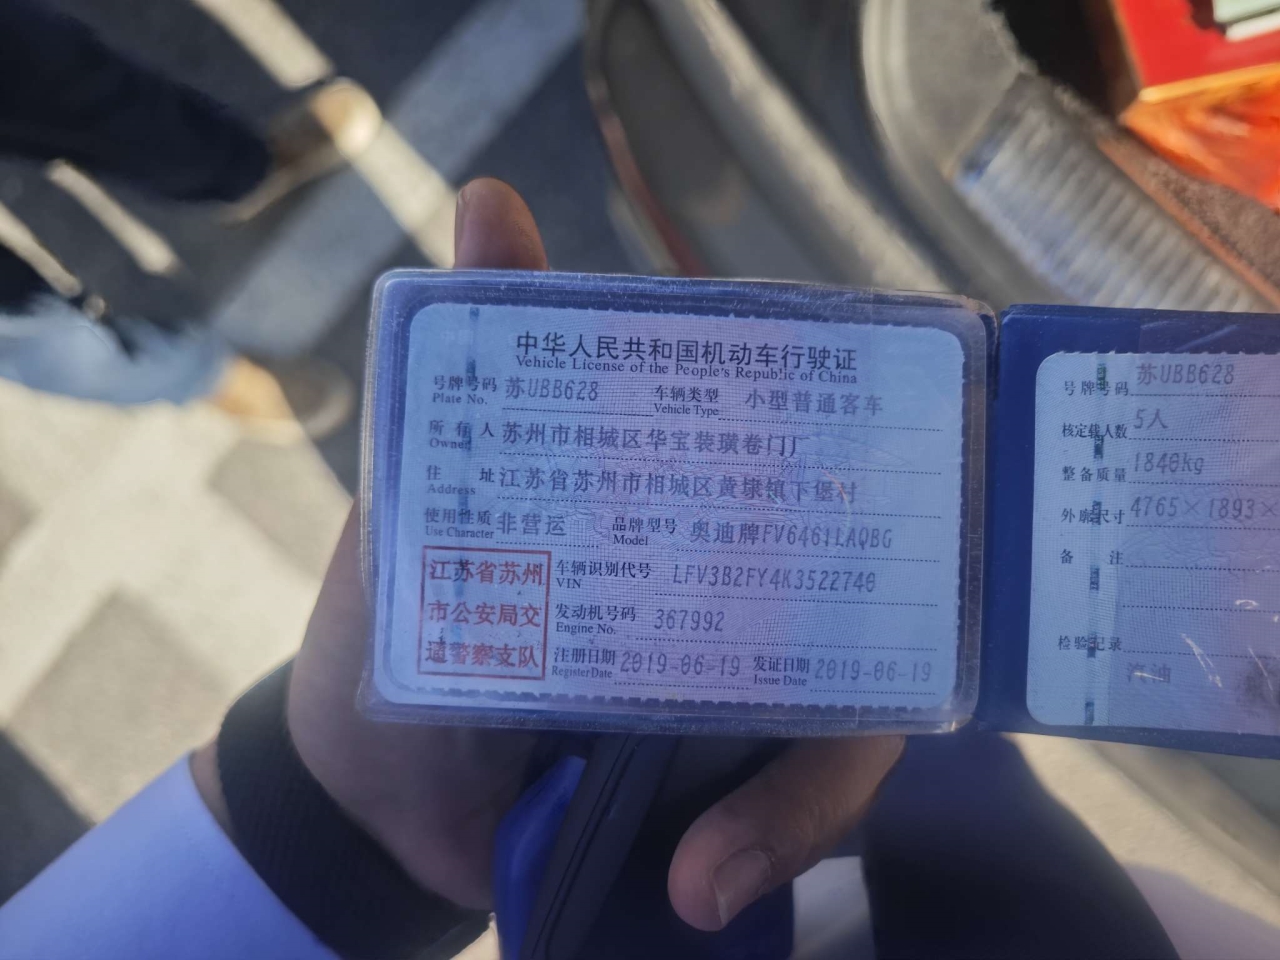 中华人民共和国机动车行驶证
Vehicle License of the People's Republic of China
号牌号码 苏UBB628 车辆类型 小型普通客车
Plate No. Vehicle Type
所有人 苏州市相城区华宝装璜卷门厂
Owner
住址 江苏省苏州市相城区黄埭镇下堡村
Address
使用性质 非营运 品牌型号 奥迪牌FV6461LAQBG
Use Character Model
江苏省苏州
市公安局交
通警察支队
车辆识别代号 LFV3B2FY4K3522740
VIN
发动机号码 367992
Engine No.
注册日期 2019-06-19 发证日期 2019-06-19
Register Date Issue Date
号牌号码 苏UBB628
核定载人数 5人
整备质量 1840kg
外廓尺寸 4765×1893×
备注
检验记录
汽油